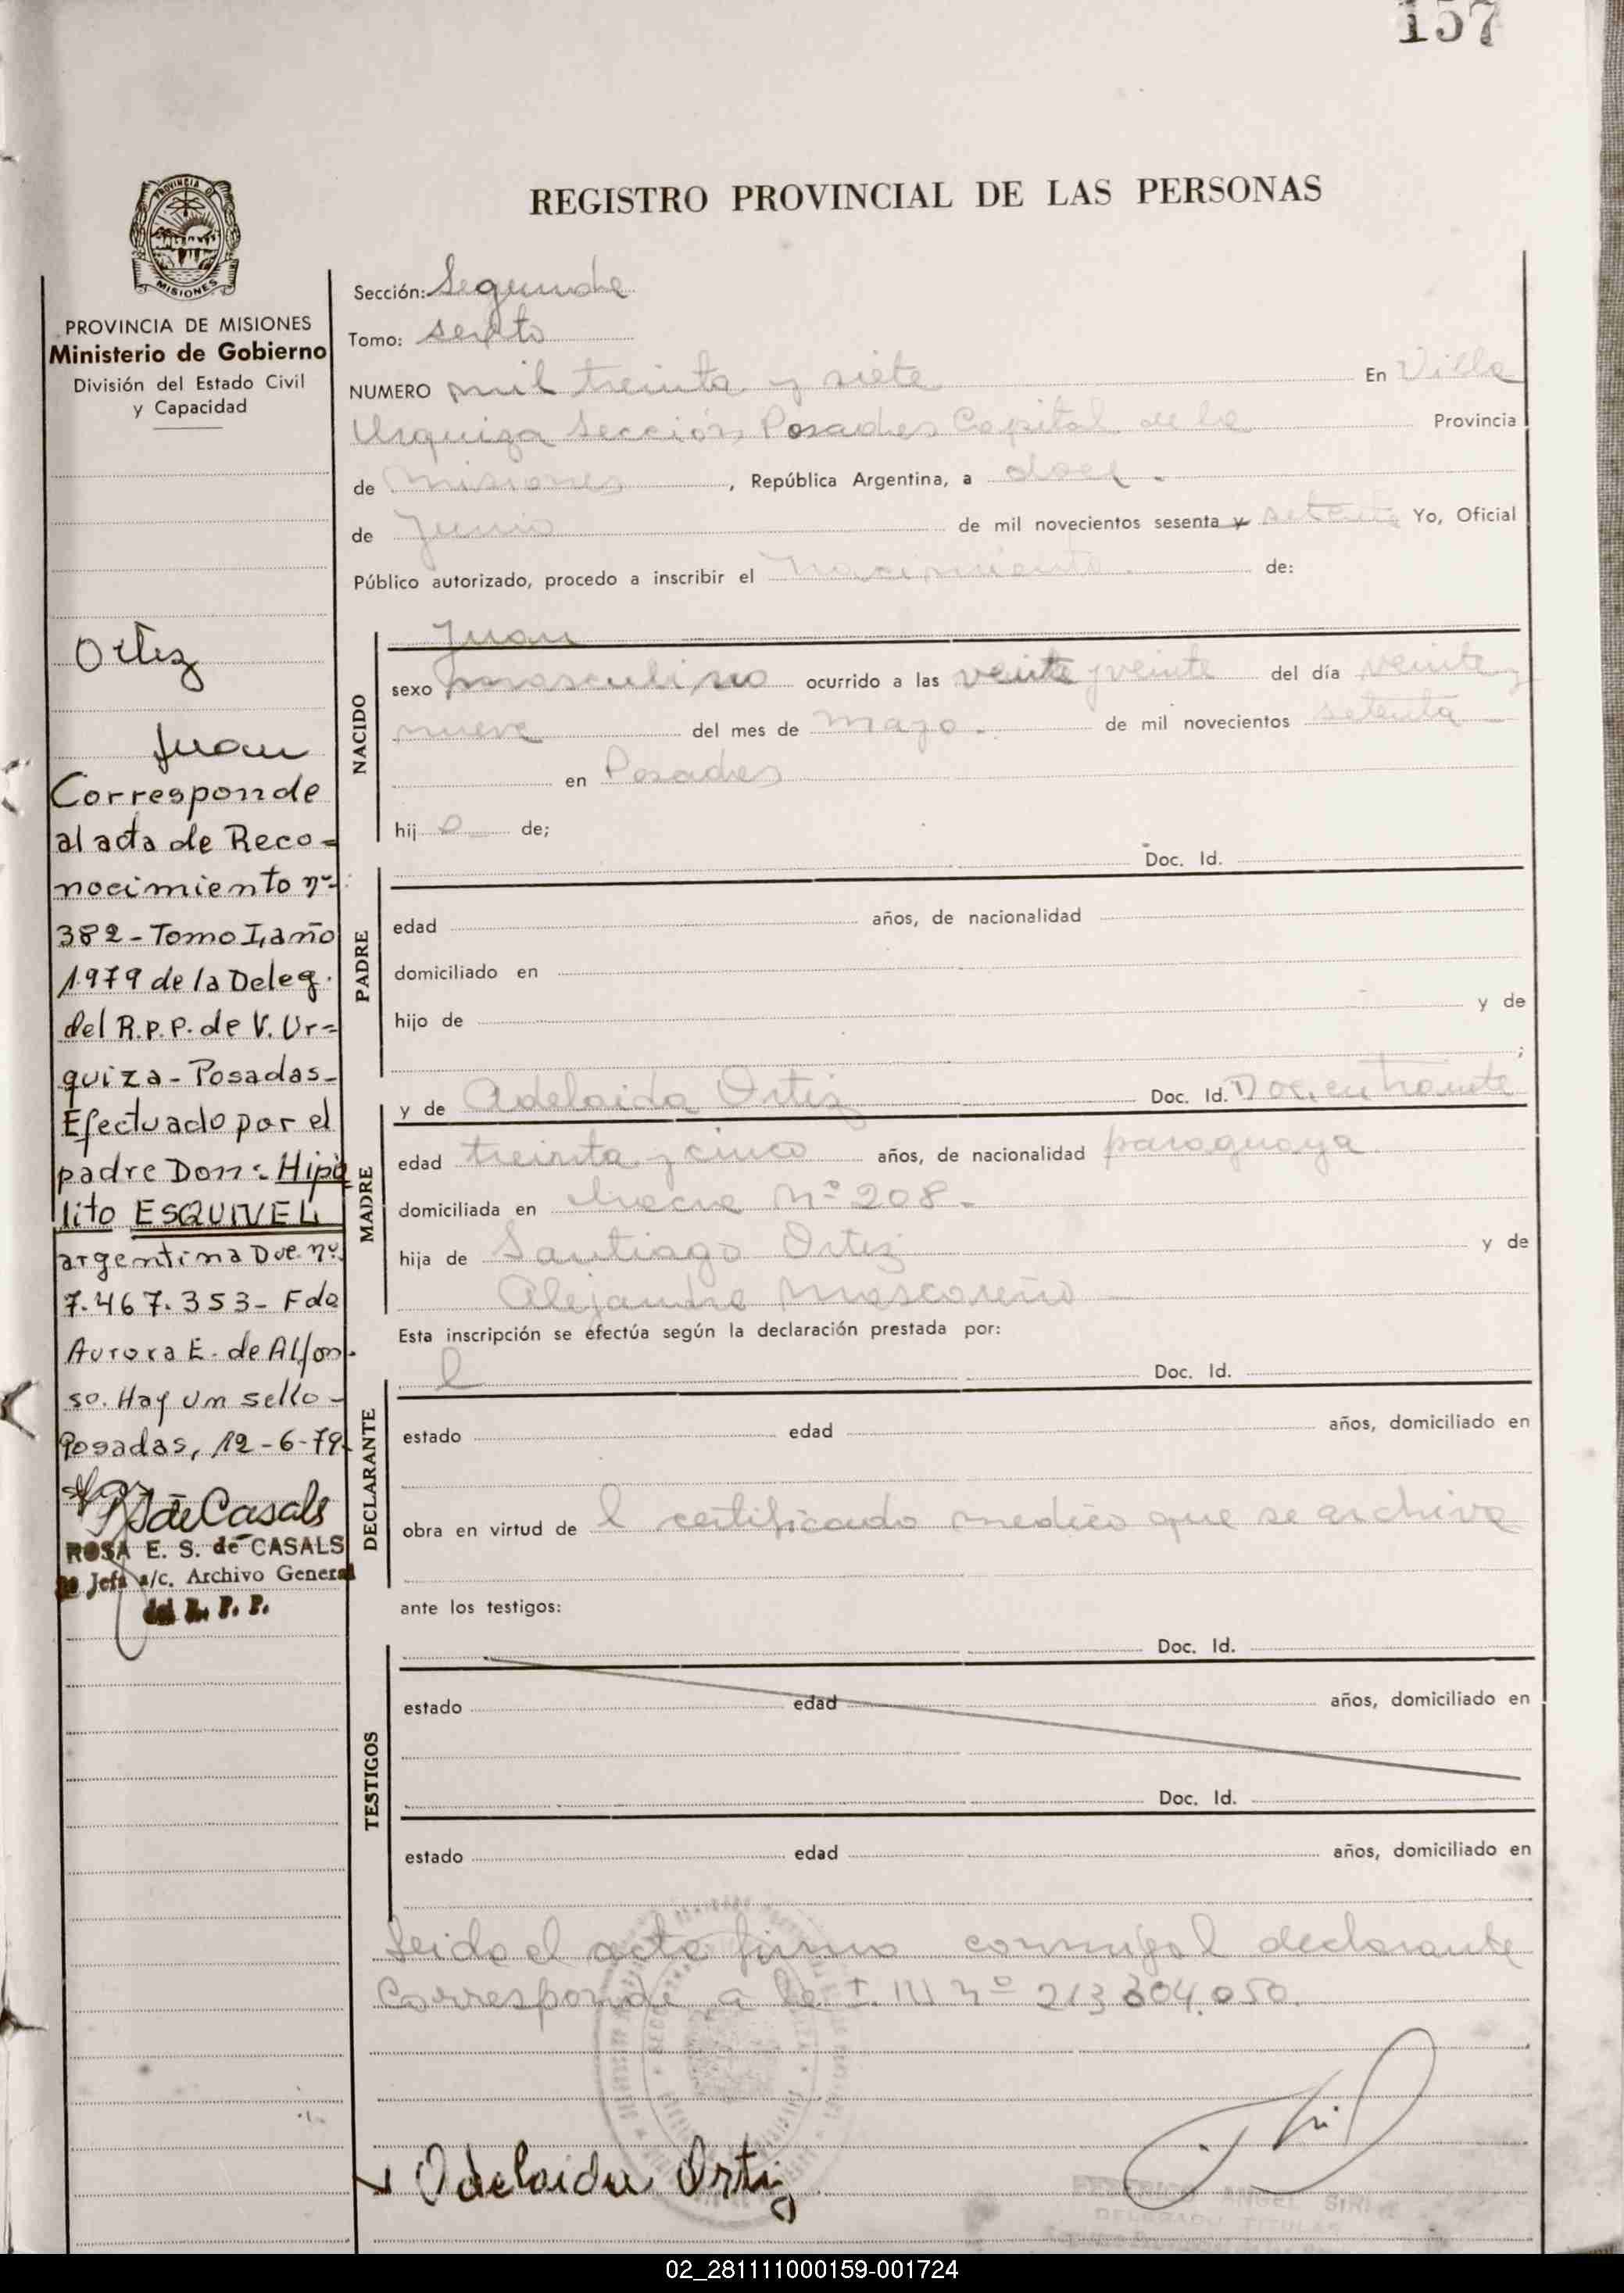 157
REGISTRO PROVINCIAL DE LAS PERSONAS
PROVINCIA DE MISIONES
Ministerio de Gobierno
División del Estado Civil
y Capacidad
Ortiz
Juan
Corresponde
al acta de Reco-
nocimiento nº
382-Tomo I, año
1979 de la Deleg.
del R.P.P. de V. Ur-
quiza-Posadas-
Efectuado por el
padre Don: Hipó
lito ESQUIVEL
argentina Doc. nº
7.467.353- Fdo
Aurora E. de Alfon-
so. Hay un sello-
Posadas, 12-6-79
de Casals
ROSA E. S. de CASALS
Jefa a/c. Archivo General
del R. P. P.
Sección: Segunda
Tomo: sexto
NUMERO mil treinta y siete En Villa
Urquiza Sección Posadas Capital de la Provincia
de Misiones, República Argentina, a doce
de Junio de mil novecientos sesenta y setenta Yo, Oficial
Público autorizado, procedo a inscribir el nacimiento de:
NACIDO
Juan
sexo masculino ocurrido a las veinte y veinte del día veinte y
nueve del mes de mayo de mil novecientos setenta
en Posadas
hij o de;
PADRE
Doc. Id.
edad años, de nacionalidad
domiciliado en
hijo de y de
;
MADRE
y de Adelaida Ortiz Doc. Id. Doc. en tramite
edad treinta y cinco años, de nacionalidad paraguaya
domiciliada en chacra Nº 208.-
hija de Santiago Ortiz y de
Alejandra Mascareño
Esta inscripción se efectúa según la declaración prestada por:
DECLARANTE
Doc. Id.
estado edad años, domiciliado en
obra en virtud de l certificado medico que se archiva
ante los testigos:
TESTIGOS
Doc. Id.
estado edad años, domiciliado en
Doc. Id.
estado edad años, domiciliado en
Leida el acta firma conmigo l declarante
Corresponde a la I. M nº 213304.050.
Adelaida Ortiz
FEDERICO ANGEL SIRI
DELEGADO TITULAR
02_281111000159-001724